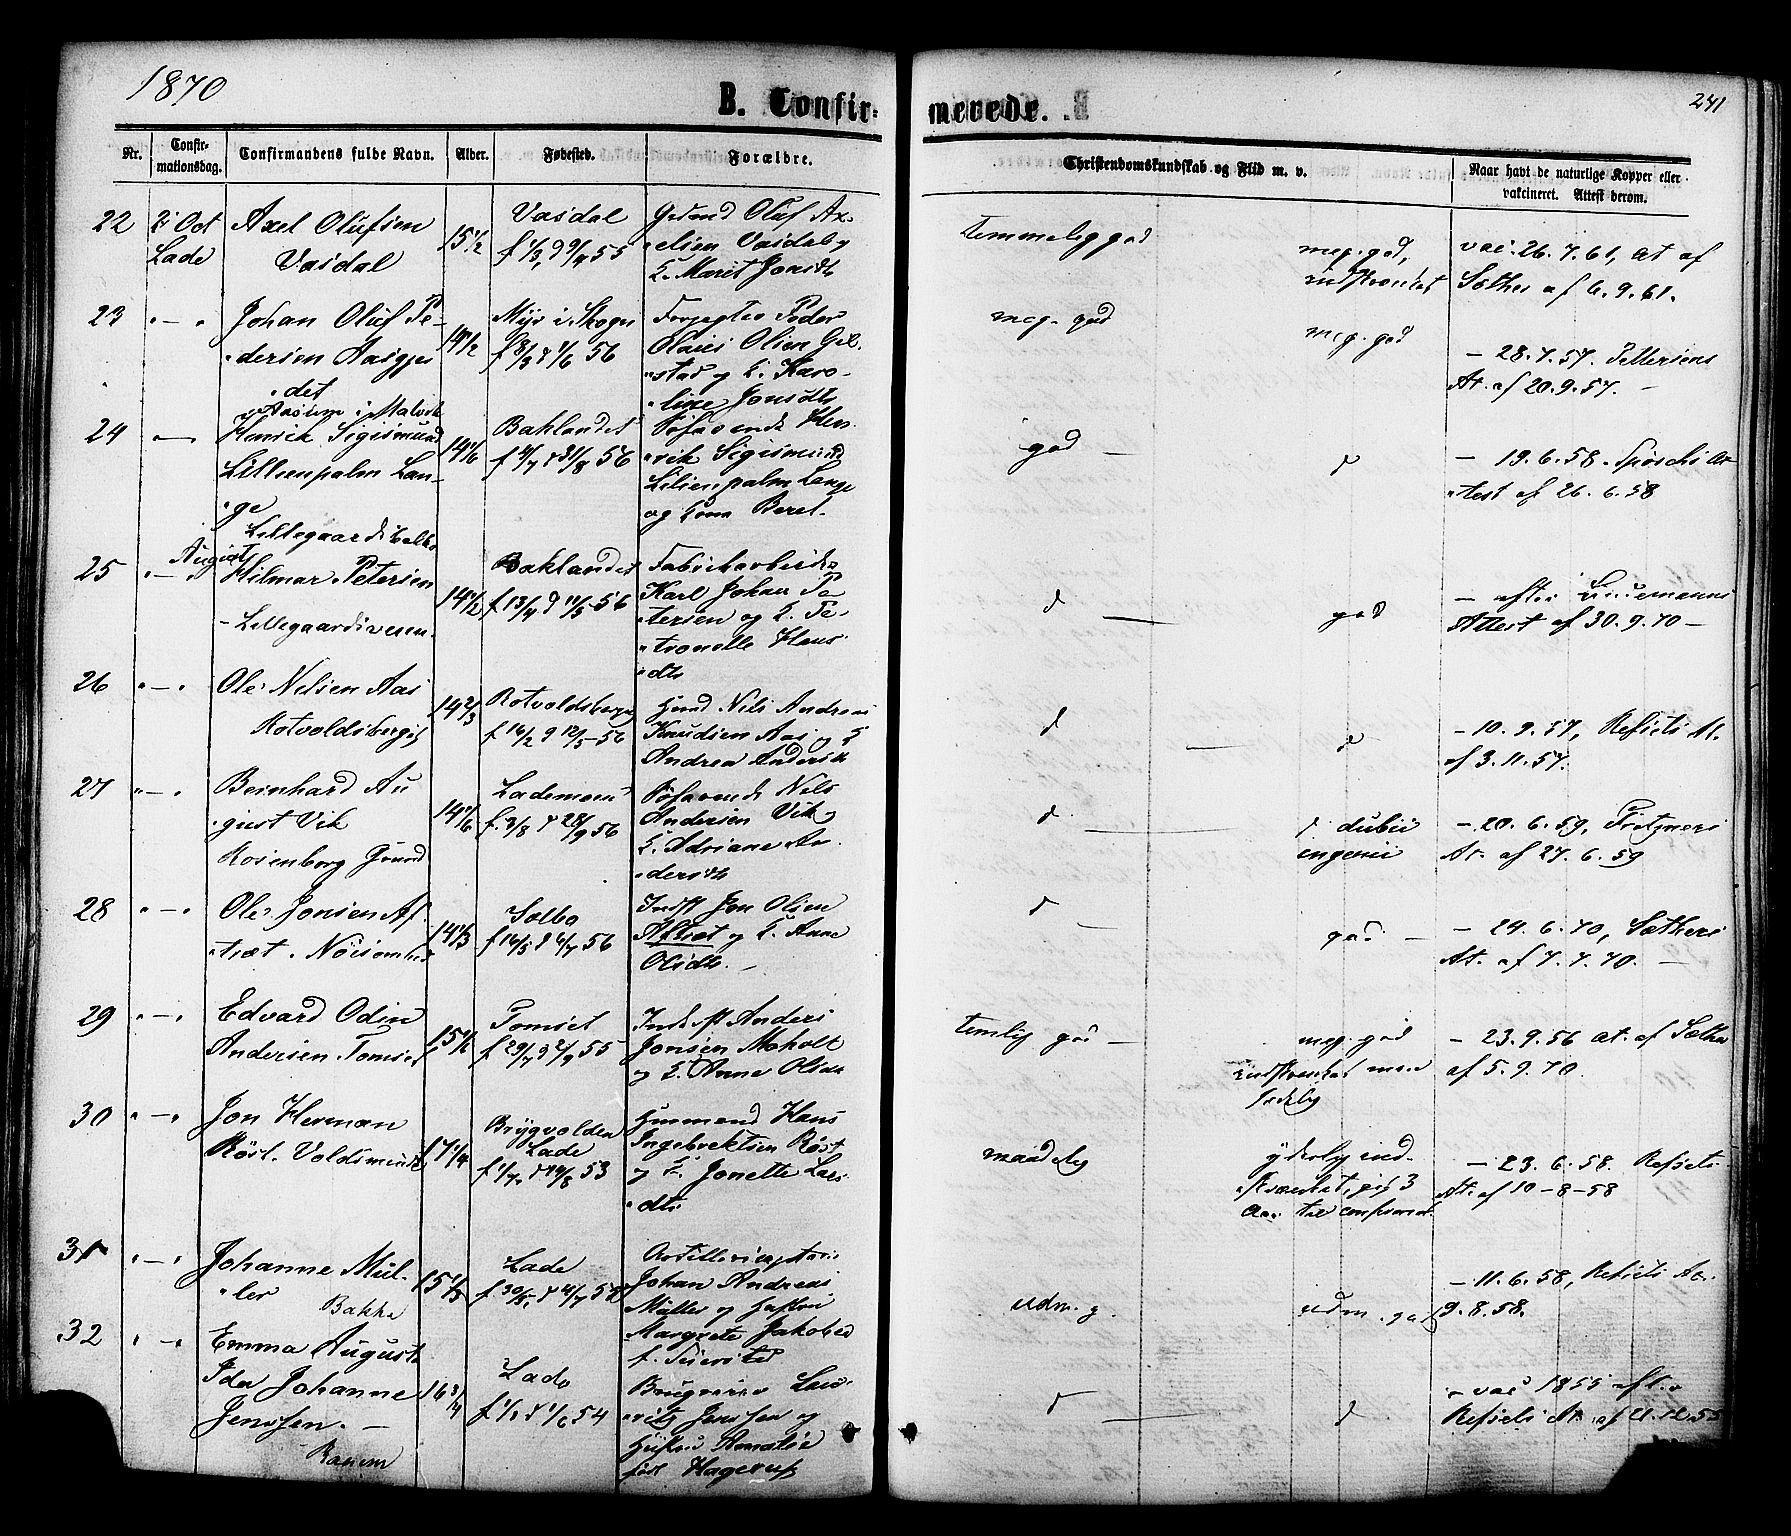 1870
B. Confir-
merede.
241
Nr.
Confir-
mationsdag.
Confirmandens fulde Navn.
Alder.
Fødested.
Forældre.
Christendomskundskab og Flid m. v.
Naar havt de naturlige Kopper eller
vakcineret. Attest derom.
22
2 Oct
Lade
Axel Olufsen
Vasdal
15 1/2
Vasdal
f 1/3, d 9/4 55
Grdmd Oluf Ax-
elsen Vasdal og
Marit Jonsdtr
temmelig god
meg. god,
indskrænket
vac. 26.7.61, at af
Sæther af 6.9.61.
23
" — "
Johan Oluf Pe-
dersen
det
14 1/2
Myr i Skogn
56
Peder
Olaus Olsen
stad og Karo-
line Jonsdtr
meg. god
meg. god
— 28.7.57. Pettersens
At. af 20.9.57. —
24
Aasem i Malvik
Henrik Sigismund
Lilienpalm Lan-
ge
14 1/6
Baklandet
f 4/7 d 31/8 56
Hen-
rik Sigismund
Lilienpalm Lange
og Kona Beret.
god —
d
— 19.6.58. At-
test af 26.6.58
25
August
Hilmar Petersen
14 1/2
Baklandet
f 13/4 d 11/5 56
Fabrikarbeider
Karl Johan Pe-
tersen og K. Pe-
tronelle Hans-
dtr
d —
god
— efter Lindemanns
Attest af 30.9.70 —
26
" — "
Ole Nilsen Aas
Rotvoldsberget
14 2/3
Rotvoldsberget
f 16/2 d 12/5 56
Nils Andreas
Knudsen Aas og K
Andrea Andersdtr
d —
d
— 10.9.57, Refsets At.
af 3.11.57.
27
" — "
Bernhard Au-
gust Vik
Rosenborg Grund
14 1/6
f. 3/8 d 28/9 56
Nils
Andersen Vik og
K. Adriane An-
dersdtr
d. —
d dubii
ingenii
— 20.6.59,
At. af 27.6.59
28
" — "
Ole Jonsen Af-
træt.
14 1/3
Selbo
f 16/5 d 6/7 56
Indst Jon Olsen
Aftræt og K. Anne
Olsdtr. —
d —
god —
— 24.6.70, Sæthers
At. af 7.7.70. —
29
" — "
Edvard Odin
Andersen. Tomset
15 1/6
Tomset
f 29/7 d 2/9 55
Indst Anders
Jonsen Moholt
og K. Anne Olsdtr
temlig god —
meg. god
indskrænket men
— 23.9.56 at. af Sæther
af 5.9.70.
30
" — "
Jon Herman
Røst. Voldsminde
17 1/4
Lade
f 1/7. d 14/8 53
Husmand Hans
Ingebrektsen Røst
og K. Jonette Lars-
dtr
maadelig
yderlig ind-
skrænket, gik 3
Aar til confirmat.
— 23.6.58. Refsets
At. af 10-8-58
31
" — "
Johanne Mül-
ler
Bakke
15 1/3
Lade
Artillericaptain
Johan Andreas
Müller og Hustru
Margrete Jakobed
udm. g.
udm. god
— 11.6.58, Refsets At.
9.8.58.
32
" — "
Emma Augusta
Ida Johanne
Jenssen. —
Ranem
16 3/4
Lade
54
Lau-
ritz Jenssen og
Hustru Amalie
født Hagerup
d —
d
— vac 1855 eft.
Refsets At. af 11.12.55